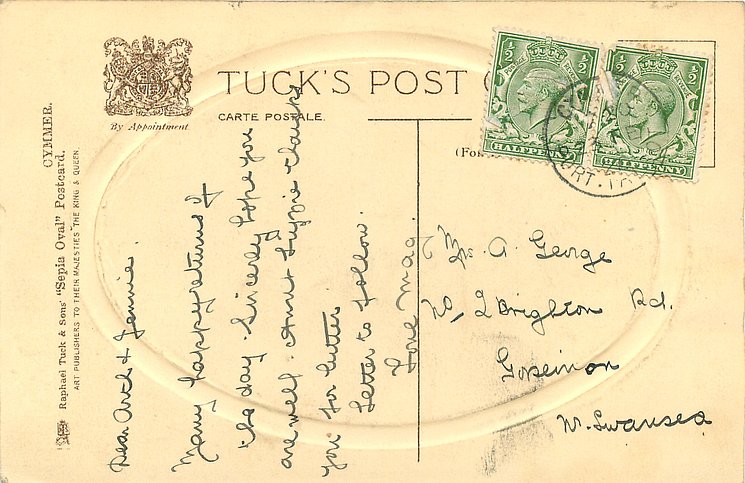 TUCK'S POST
CARTE POSTALE.
By Appointment
(For
CYMMER.
Raphael Tuck & Sons' "Sepia Oval" Postcard.
ART PUBLISHERS TO THEIR MAJESTIES THE KING & QUEEN.
½ ½
HALFPENNY
½ ½
HALFPENNY
PORT. TA
Dear & Jennie.
Many happy returns of
the day. Sincerely hope you
are well. Aunt Lizzie thanks
you for letter
Letter to follow.
Love Mag.
Mrs. A. George
No, 2 Brighton Rd.
Gorseinon
Nr. Swansea